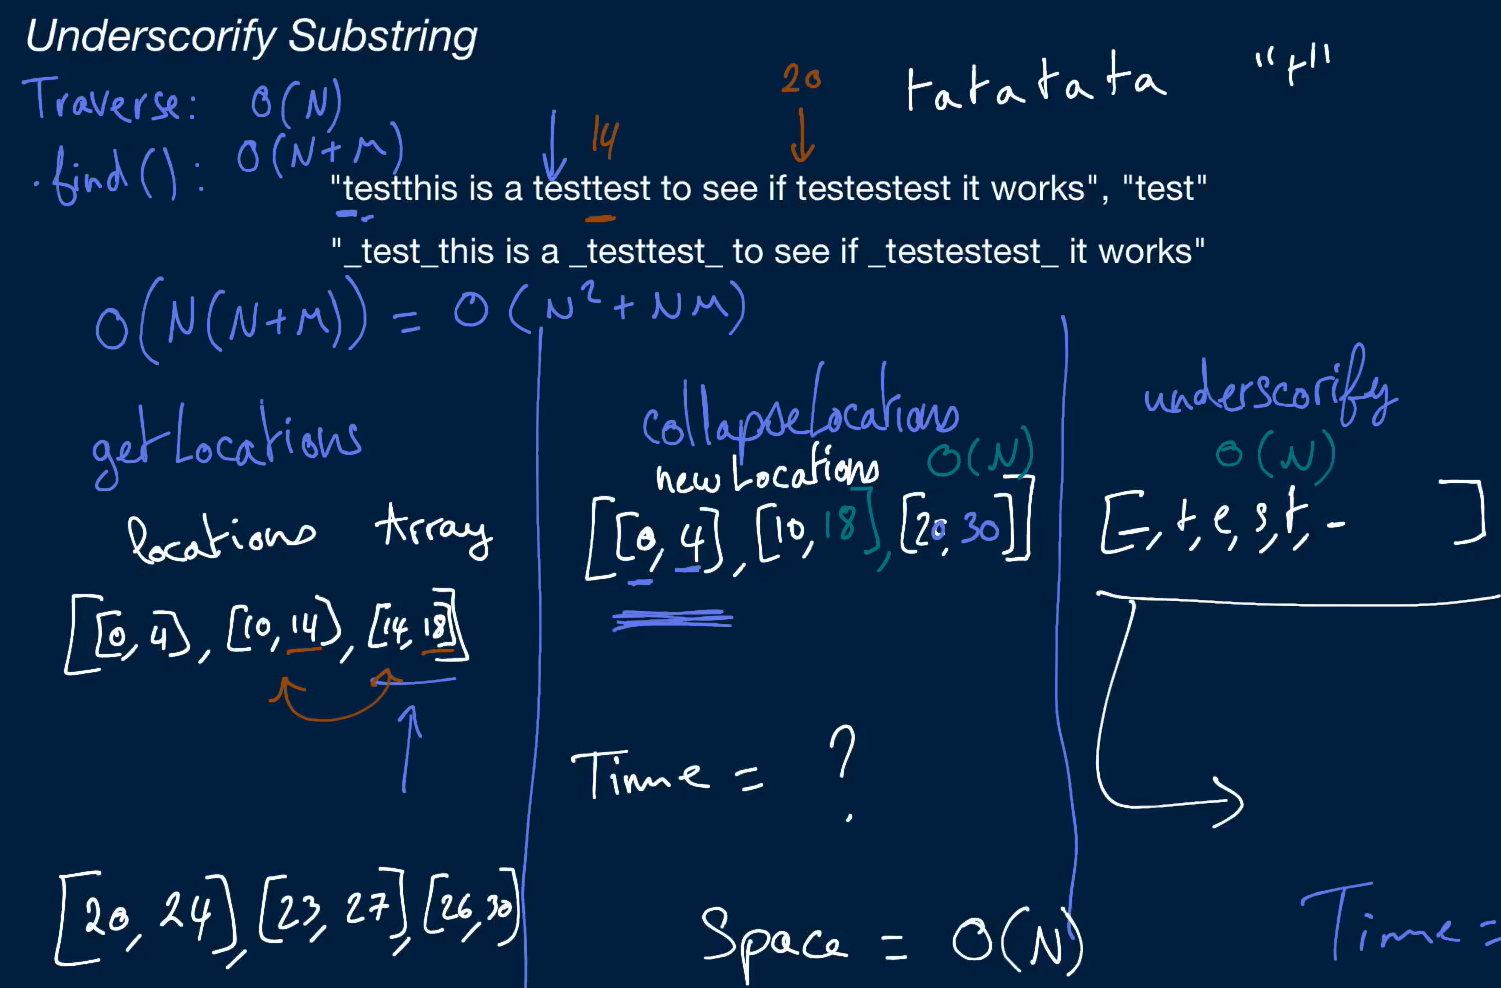 Underscorify Substring
Traverse: O(N)
.find(): O(N+M)
20
tatatata "t"
14
"testthis is a testtest to see if testestest it works", "test"
"_test_this is a _testtest_ to see if _testestest_ it works"
O(N(N+M)) = O(N²+NM)
getLocations
locations Array
[[0, 4], [10, 14], [14, 18]]
[20, 24], [23, 27], [26, 30]
collapseLocations
newLocations O(N)
[[0, 4], [10, 18], [20, 30]]
Time = ?
Space = O(N)
underscorify
O(N)
[_, t, e, s, t, _ ]
Time =